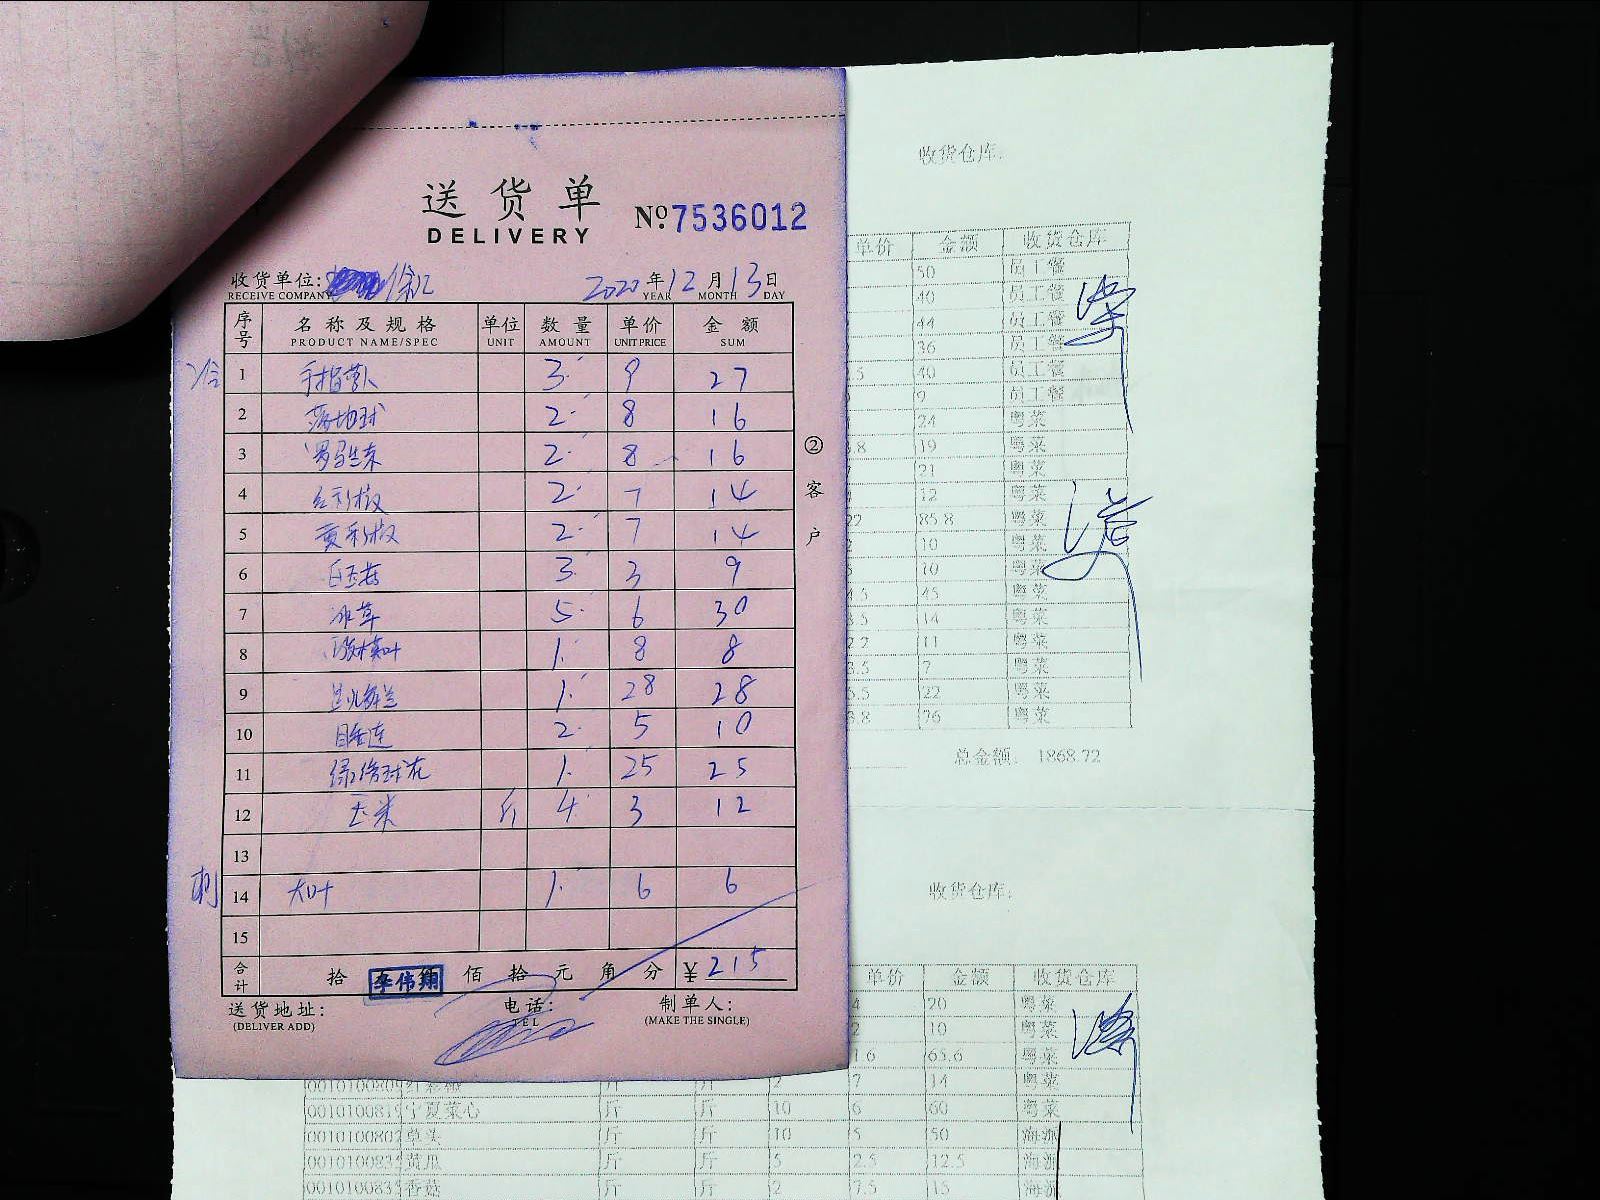 送货单
DELIVERY
№ 7536012
收货单位: 徐汇 2020年12月13日
RECEIVE COMPANY YEAR MONTH DAY
序号 名称及规格 单位 数量 单价 金额
PRODUCT NAME/SPEC UNIT AMOUNT UNIT PRICE SUM
1 手指萝卜 3 9 27
2 2 8 16
3 罗马生菜 2 8 16
4 2 7 14
5 2 7 14
6 白玉菇 3 3 9
7 冰草 5 6 30
8 1 8 8
9 1 28 28
10 2 5 10
11 1 25 25
12 玉米 斤 4 3 12
13
14 大叶 1 6 6
15
合计 拾 佰 拾 元 角 分 ¥215
李伟翔
送货地址: 电话: 制单人:
(DELIVER ADD) TEL (MAKE THE SINGLE)
②客户
收货仓库:
单价 金额 收货仓库
50 员工餐
40 员工餐
44 员工餐
36 员工餐
.5 40 员工餐
9 员工餐
24 粤菜
.8 19 粤菜
21 粤菜
12 粤菜
22 85.8 粤菜
10 粤菜
10 粤菜
4.5 45 粤菜
3.5 14 粤菜
2.2 11 粤菜
3.5 7 粤菜
5.5 22 粤菜
3.8 76 粤菜
总金额: 1868.72
收货仓库:
单价 金额 收货仓库
4 20 粤菜
2 10 粤菜
1.6 65.6 粤菜
斤 斤 2 7 14 粤菜
宁夏菜心 斤 斤 10 6 60 粤菜
草头 斤 斤 10 5 50 海派
黄瓜 斤 斤 5 2.5 12.5 海派
香菇 斤 斤 2 7.5 15 海派